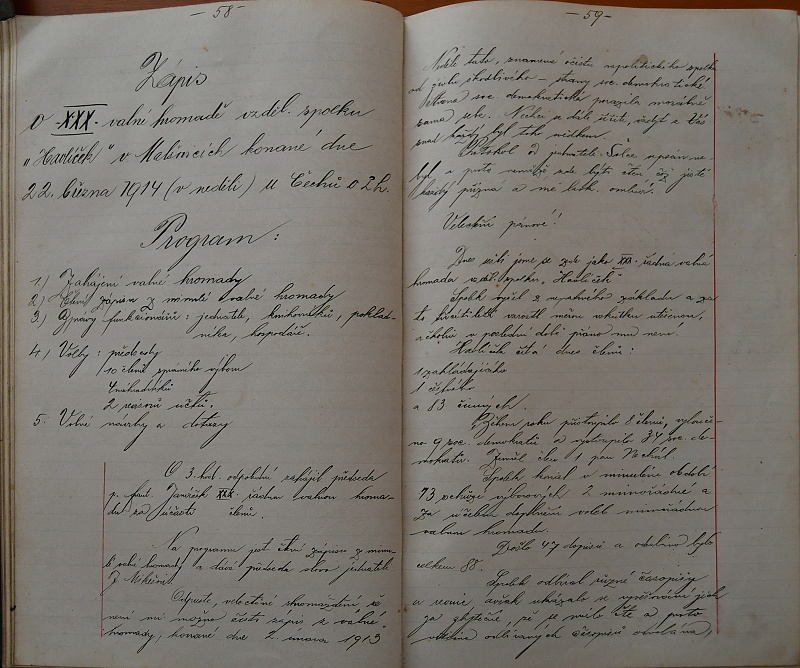 — 58 —
Zápis
o XXX. valné hromadě vzděl. spolku
„Havlíček" v Malonicích konané dne
22. března 1914 (v neděli) u Čechů o 2 h.
Program:
1.) Zahájení valné hromady
2.) Čtení zápisu z minulé valné hromady
3.) Zprávy funkcionářů: jednatele, knihovníků, poklad-
níka, hospodáře.
4.) Volby: předsedy
10 členů správního výboru
4 náhradníků
2 revisorů účtů,
5. Volné návrhy a dotazy
O 3. hod. odpolední zahájil předseda
p. Janížek XXX. řádnou valnou hroma-
du za účasti členů.
Na programu jest čtení zápisu z minu-
lé valné hromady a dává předseda slovo jednateli
J. Mikešovi
Odpusťte, velectěné shromáždění, že
není mi možno čísti zápis z valné
hromady, konané dne 2. února 1913
— 59 —
Neboť tato, znamená očistu nepolitického spolku
od živlu škodlivého – strany soc. demokratické
soc. demokratická porazila morálně
sama sebe. Nechci se dále šířiti, vždyť z Vás
snad každý byl toho svědkem.
Protokol od jednatele Šolce napsán ne-
byl a proto nemůže zde býti čten což jistě
každý přizná a mě lask. omluví.
Velectění pánové!
Dnes sešli jsme se zde jako XXX. řádná valná
hromada vzděl. spolku „Havlíček"
Spolek vyšel z nepatrného základu a za
to vzrostl měrou utěšenou,
ačkoliv v poslední době přáno mu není.
Havlíček čítá dnes členů:
1 zakládajícího
1 čestného
a 83 činných.
Během roku přistoupilo 8 členů, vylouče-
no 9 soc. demokratů a vystoupilo 34 soc. de-
mokratů. Zemřel člen 1 pan
Spolek konal v minulém období
13 schůzí výborových 2 mimořádné a
za účelem doplnění voleb mimořádnou
valnou hromadu.
Došlo 47 dopisů a odesláno bylo
celkem 88.
Spolek odbíral různé časopisy
a revue avšak ukázalo se vydržování jich
za zbytečné, že je málo čte a proto
většina odbíraných časopisů odvolána,